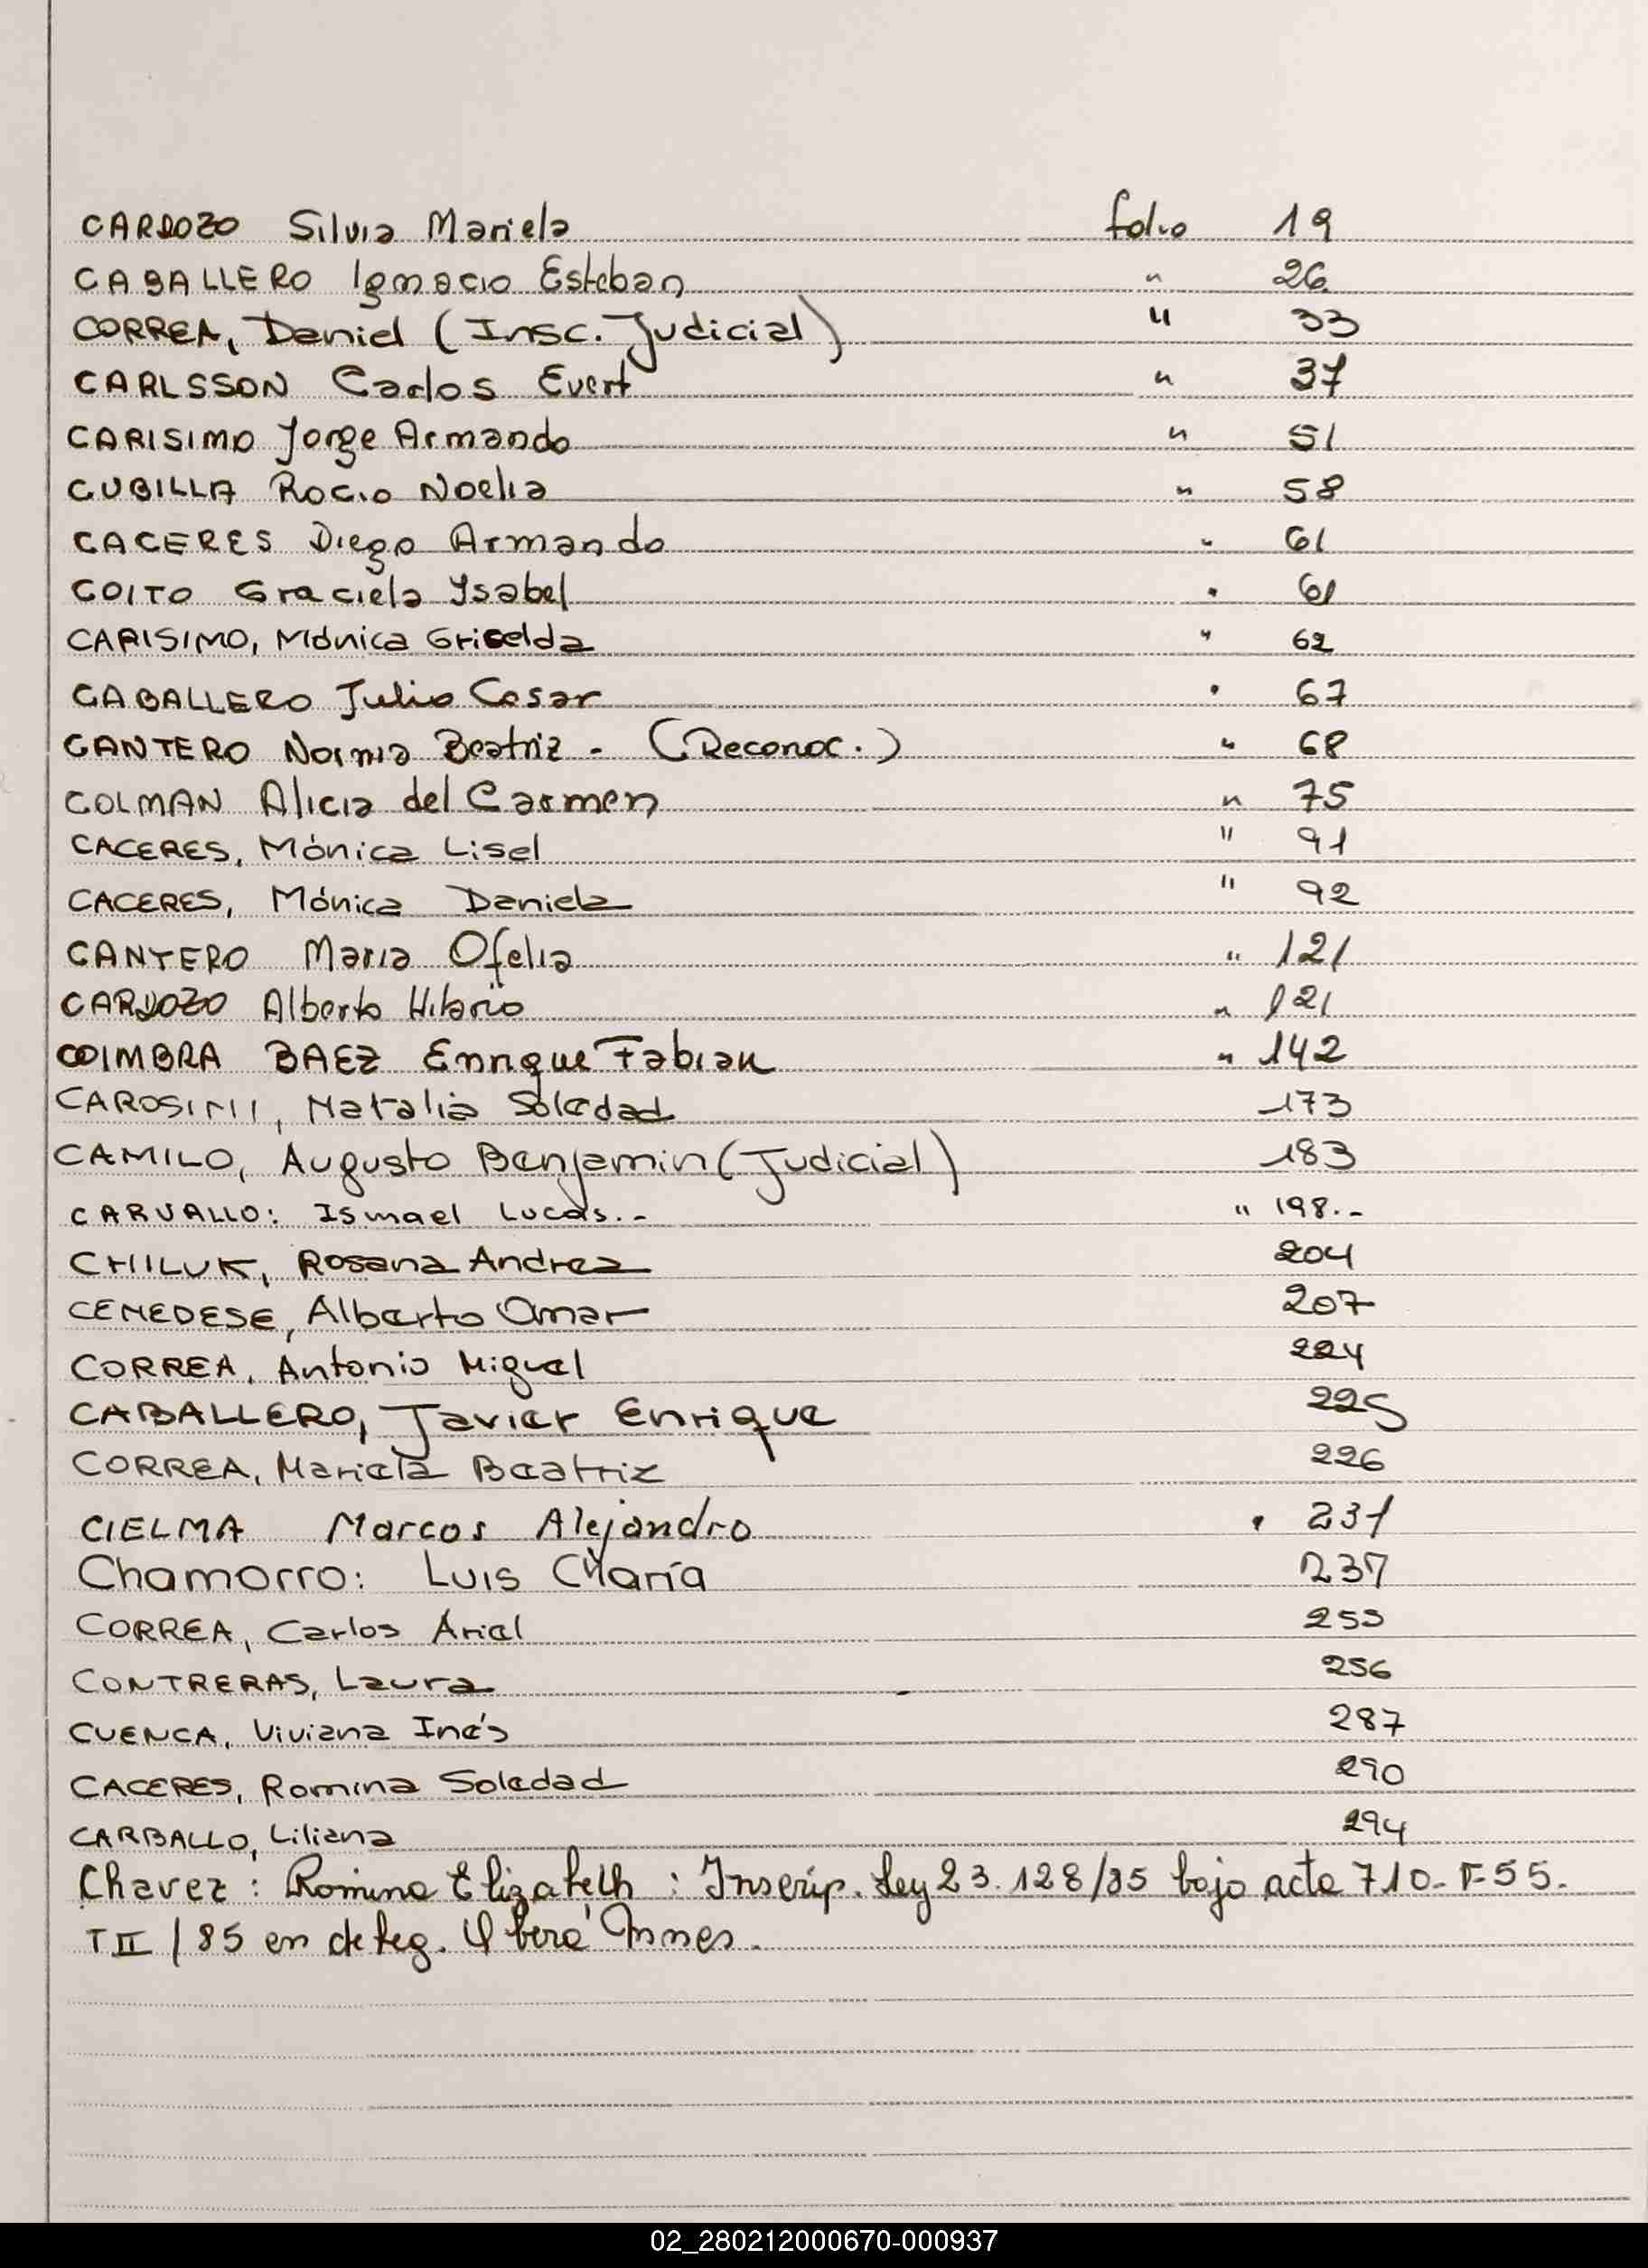 CARDOZO Silvia Mariela folio 19
CABALLERO Ignacio Esteban " 26
CORREA, Daniel (Insc. Judicial) " 33
CARLSSON Carlos Evert " 37
CARISIMO Jorge Armando " 51
CUBILLA Rocio Noelia " 58
CACERES Diego Armando " 61
COITO Graciela Ysabel " 61
CARISIMO, Mónica Griselda " 62
CABALLERO Julio Cesar " 67
CANTERO Norma Beatriz - (Reconoc.) " 68
COLMAN Alicia del Carmen " 75
CACERES, Mónica Lisel " 91
CACERES, Mónica Daniela " 92
CANTERO Maria Ofelia " 121
CARDOZO Alberto Hilario " 121
COIMBRA BAEZ Enrique Fabian " 142
CAROSINI, Natalia Soledad 173
CAMILO, Augusto Benjamin (Judicial) 183
CARVALLO: Ismael Lucas.- " 198.-
CHILUK, Rosana Andrea 204
CENEDESE, Alberto Omar 207
CORREA, Antonio Miguel 224
CABALLERO, Javier Enrique 225
CORREA, Mariela Beatriz 226
CIELMA Marcos Alejandro " 231
Chamorro: Luis María 237
CORREA, Carlos Ariel 253
CONTRERAS, Laura 256
CUENCA, Viviana Inés 287
CACERES, Romina Soledad 290
CARBALLO, Liliana 294
Chavez: Romina Elizabeth: Inscrip. Ley 23.128/85 bajo acta 710- F-55.
T II / 85 en deleg. Oberá Mnes.
02_280212000670-000937